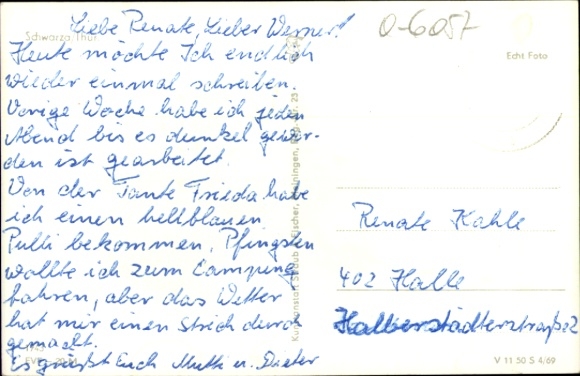 Liebe Renate, Lieber Werner!
Schwarza Thür
Heute möchte Ich endlich
wieder einmal schreiben.
Vorige Woche habe ich jeden
Abend bis es dunkel gewor-
den ist gearbeitet.
Von der Tante Frieda habe
ich einen hellblauen
Pulli bekommen. Pfingsten
wollte ich zum Camping
fahren, aber das Wetter
hat mir einen Strich durch
gemacht.
Es grüßt Euch Mutti u. Dieter
0-6057
Echt Foto
Renate Kahle
402 Halle
Halberstädterstraße 2
V 11 50 S 4/69